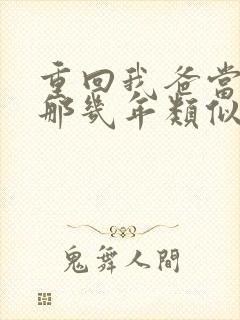 重回我爸当
那幾年類似
鬼舞人間